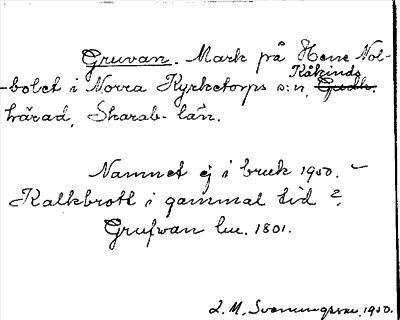 Gruvan. Mark på Hene Nol-
-bolet i Norra Kyrketorps s:n, Kåkinds
härad, Skarab- län.
Namnet ej i bruk 1950. -
Kalkbrott i gammal tid ?.
Grufwan lm. 1801.
L. M. Svenungsson, 1950.